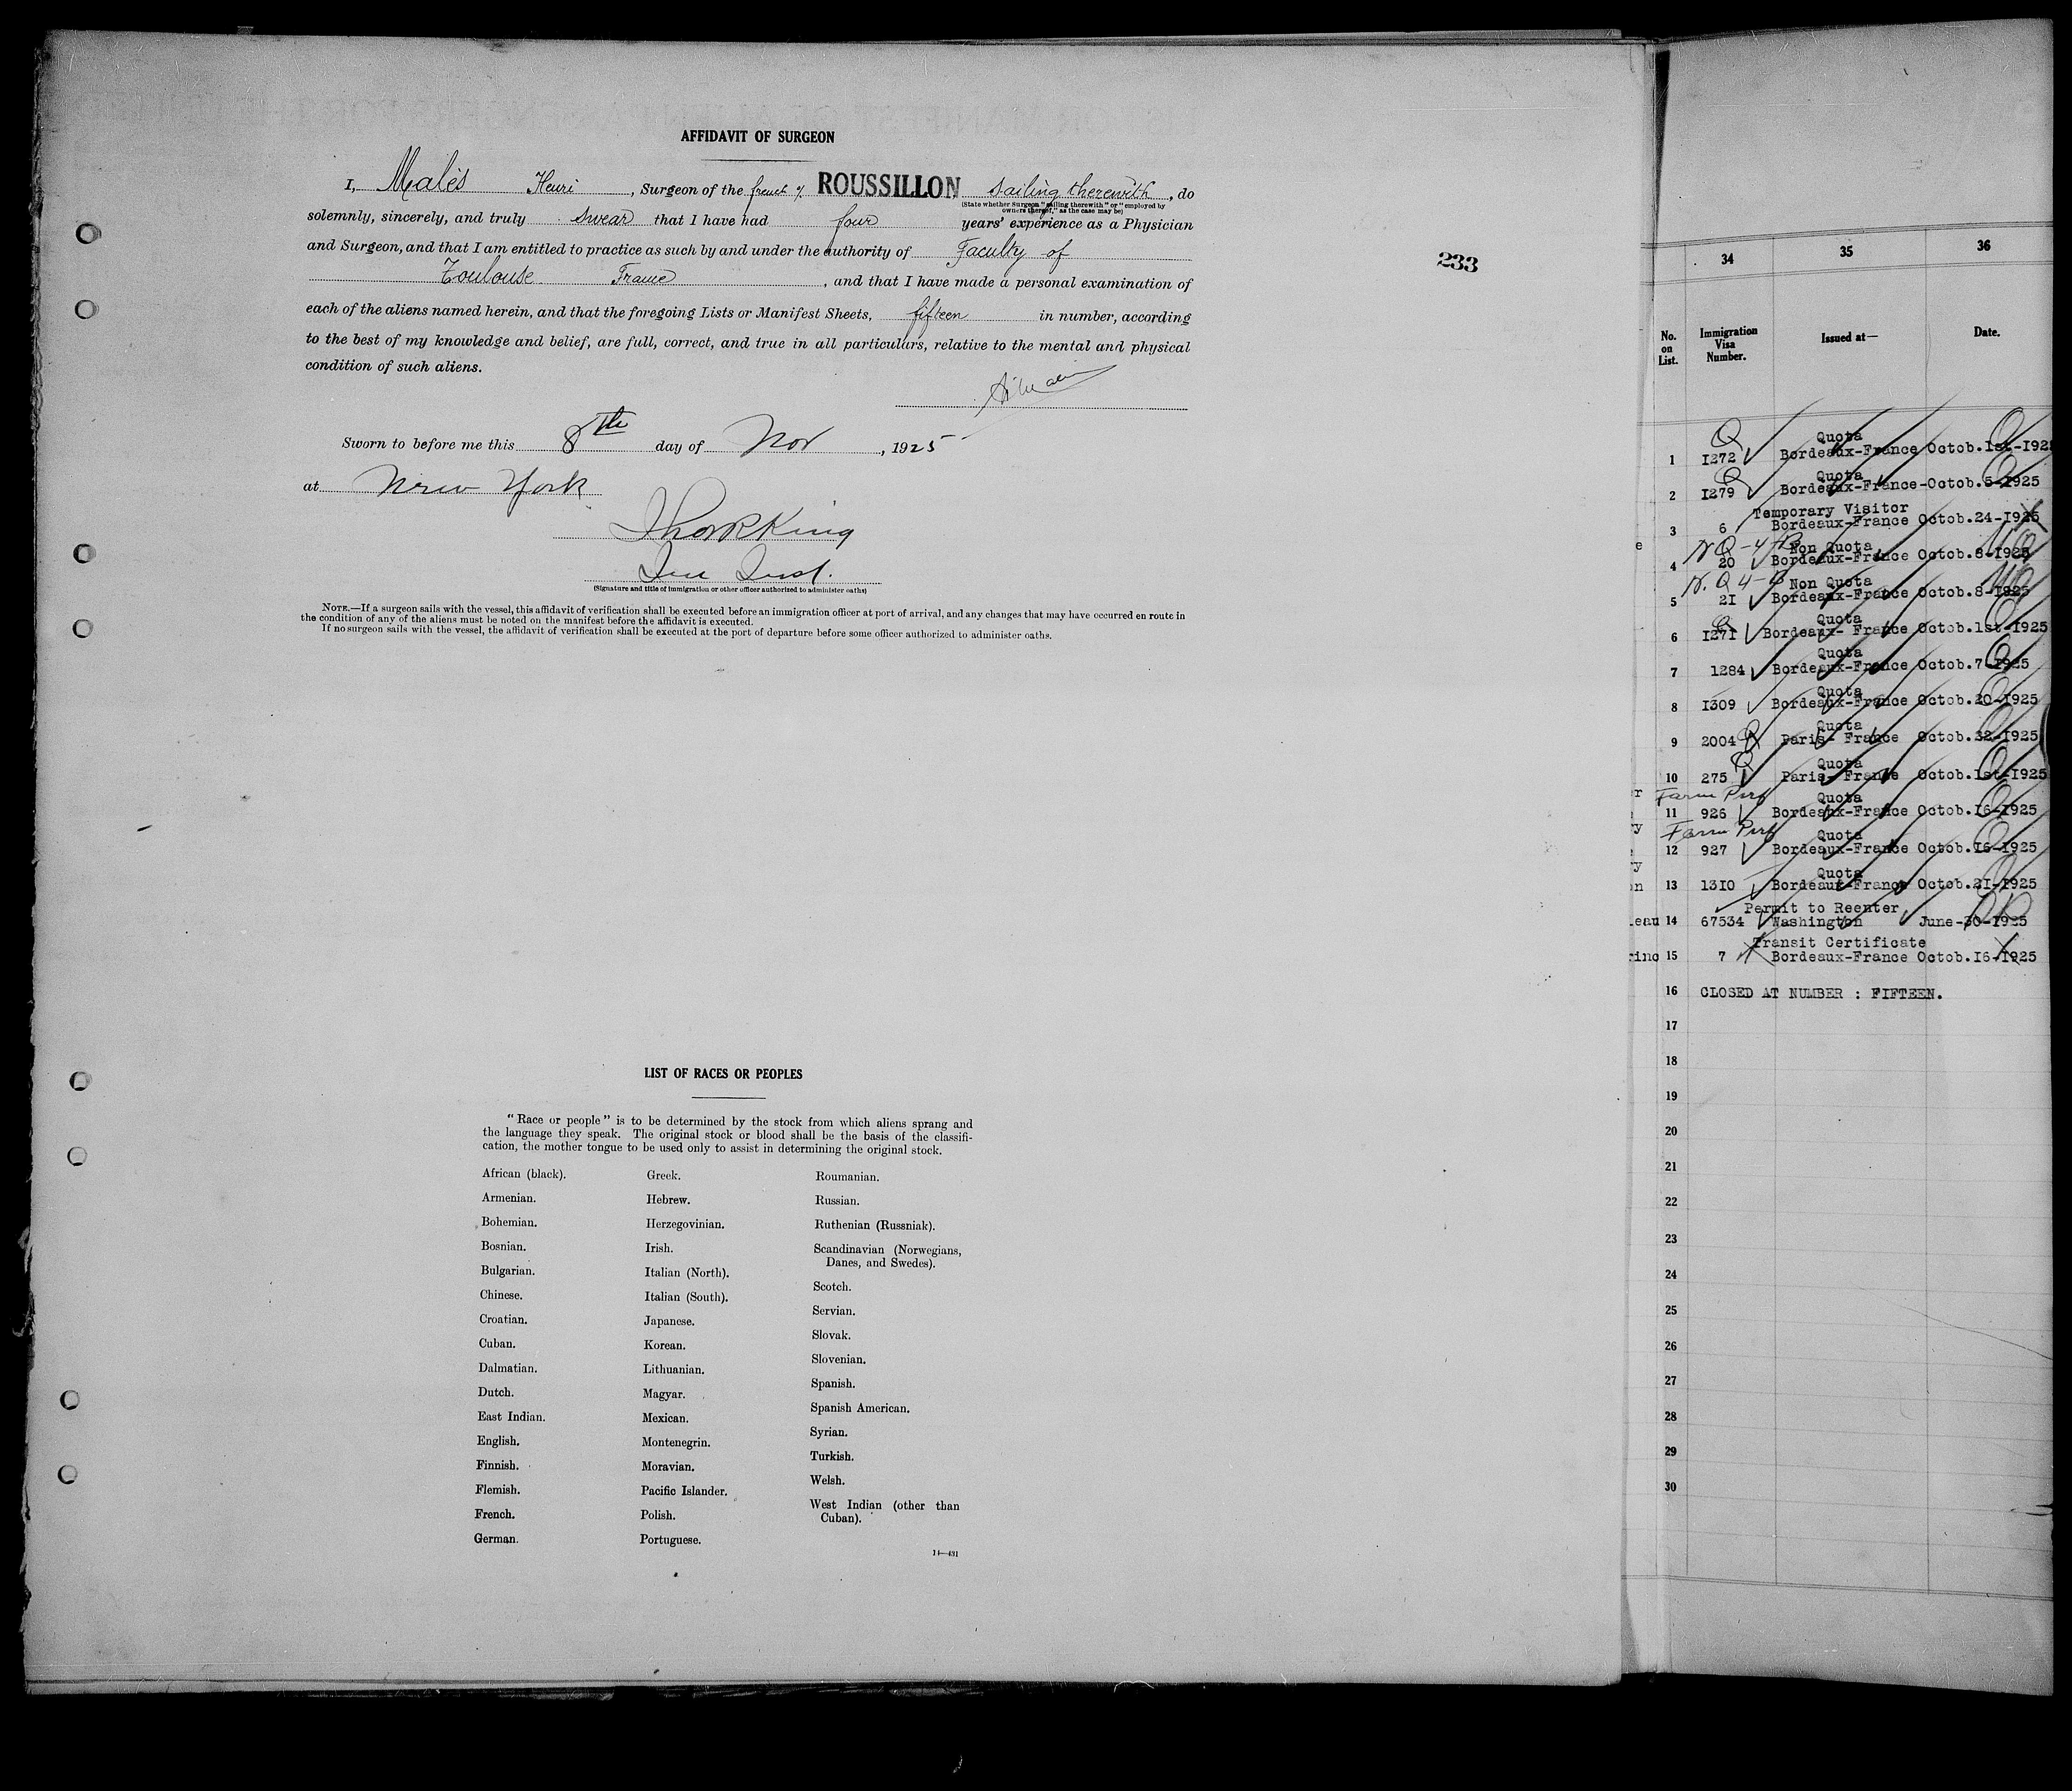 AFFIDAVIT OF SURGEON
I, Malès Henri, Surgeon of the french ROUSSILLON sailing therewith, do
(State whether Surgeon "sailing therewith" or "employed by
owners thereof," as the case may be)
solemnly, sincerely, and truly swear that I have had four years' experience as a Physician
and Surgeon, and that I am entitled to practice as such by and under the authority of Faculty of
Toulouse France, and that I have made a personal examination of
each of the aliens named herein, and that the foregoing Lists or Manifest Sheets, fifteen in number, according
to the best of my knowledge and belief, are full, correct, and true in all particulars, relative to the mental and physical
condition of such aliens.
Sworn to before me this 8th day of Nov, 1925
at New York
King
(Signature and title of immigration or other officer authorized to administer oaths)
NOTE.—If a surgeon sails with the vessel, this affidavit of verification shall be executed before an immigration officer at port of arrival, and any changes that may have occurred en route in
the condition of any of the aliens must be noted on the manifest before the affidavit is executed.
If no surgeon sails with the vessel, the affidavit of verification shall be executed at the port of departure before some officer authorized to administer oaths.
233
LIST OF RACES OR PEOPLES
"Race or people" is to be determined by the stock from which aliens sprang and
the language they speak. The original stock or blood shall be the basis of the classifi-
cation, the mother tongue to be used only to assist in determining the original stock.
African (black).
Armenian.
Bohemian.
Bosnian.
Bulgarian.
Chinese.
Croatian.
Cuban.
Dalmatian.
Dutch.
East Indian.
English.
Finnish.
Flemish.
French.
German.
Greek.
Hebrew.
Herzegovinian.
Irish.
Italian (North).
Italian (South).
Japanese.
Korean.
Lithuanian.
Magyar.
Mexican.
Montenegrin.
Moravian.
Pacific Islander.
Polish.
Portuguese.
Roumanian.
Russian.
Ruthenian (Russniak).
Scandinavian (Norwegians,
Danes, and Swedes).
Scotch.
Servian.
Slovak.
Slovenian.
Spanish.
Spanish American.
Syrian.
Turkish.
Welsh.
West Indian (other than
Cuban).
14—431
34 35 36
No. on List. Immigration Visa Number. Issued at— Date.
Q Quota Q
1 I272 Bordeaux-France Octob.1st-I925
Q Quota Q
2 I279 Bordeaux-France-Octob.5-I925
Temporary Visitor
3 6 Bordeaux-France Octob.24-I925
N Q-4- Non Quota
4 20 Bordeaux-France Octob.8-I925
N.Q 4- Non Quota
5 2I Bordeaux-France Octob.8-I925
Q Quota Q
6 I27I Bordeaux- France Octob.1st-I925
Quota Q
7 1284 Bordeaux-France Octob.7-I925
Quota Q
8 I309 Bordeaux-France Octob.20-I925
Q Quota Q
9 2004 Paris- France Octob. -I925
Q Quota Q
10 275 Paris- France Octob.1st-I925
Farm Pref Quota Q
11 926 Bordeaux-France Octob.I6-I925
Farm Pref Quota Q
12 927 Bordeaux-France Octob.I6-I925
Quota Q
13 1310 Bordeaux-France Octob.21-I925
Permit to Reenter
leau 14 67534 Washington June-30-I925
Transit Certificate
rino 15 7 Bordeaux-France Octob.I6-I925
16 CLOSED AT NUMBER : FIFTEEN.
17
18
19
20
21
22
23
24
25
26
27
28
29
30